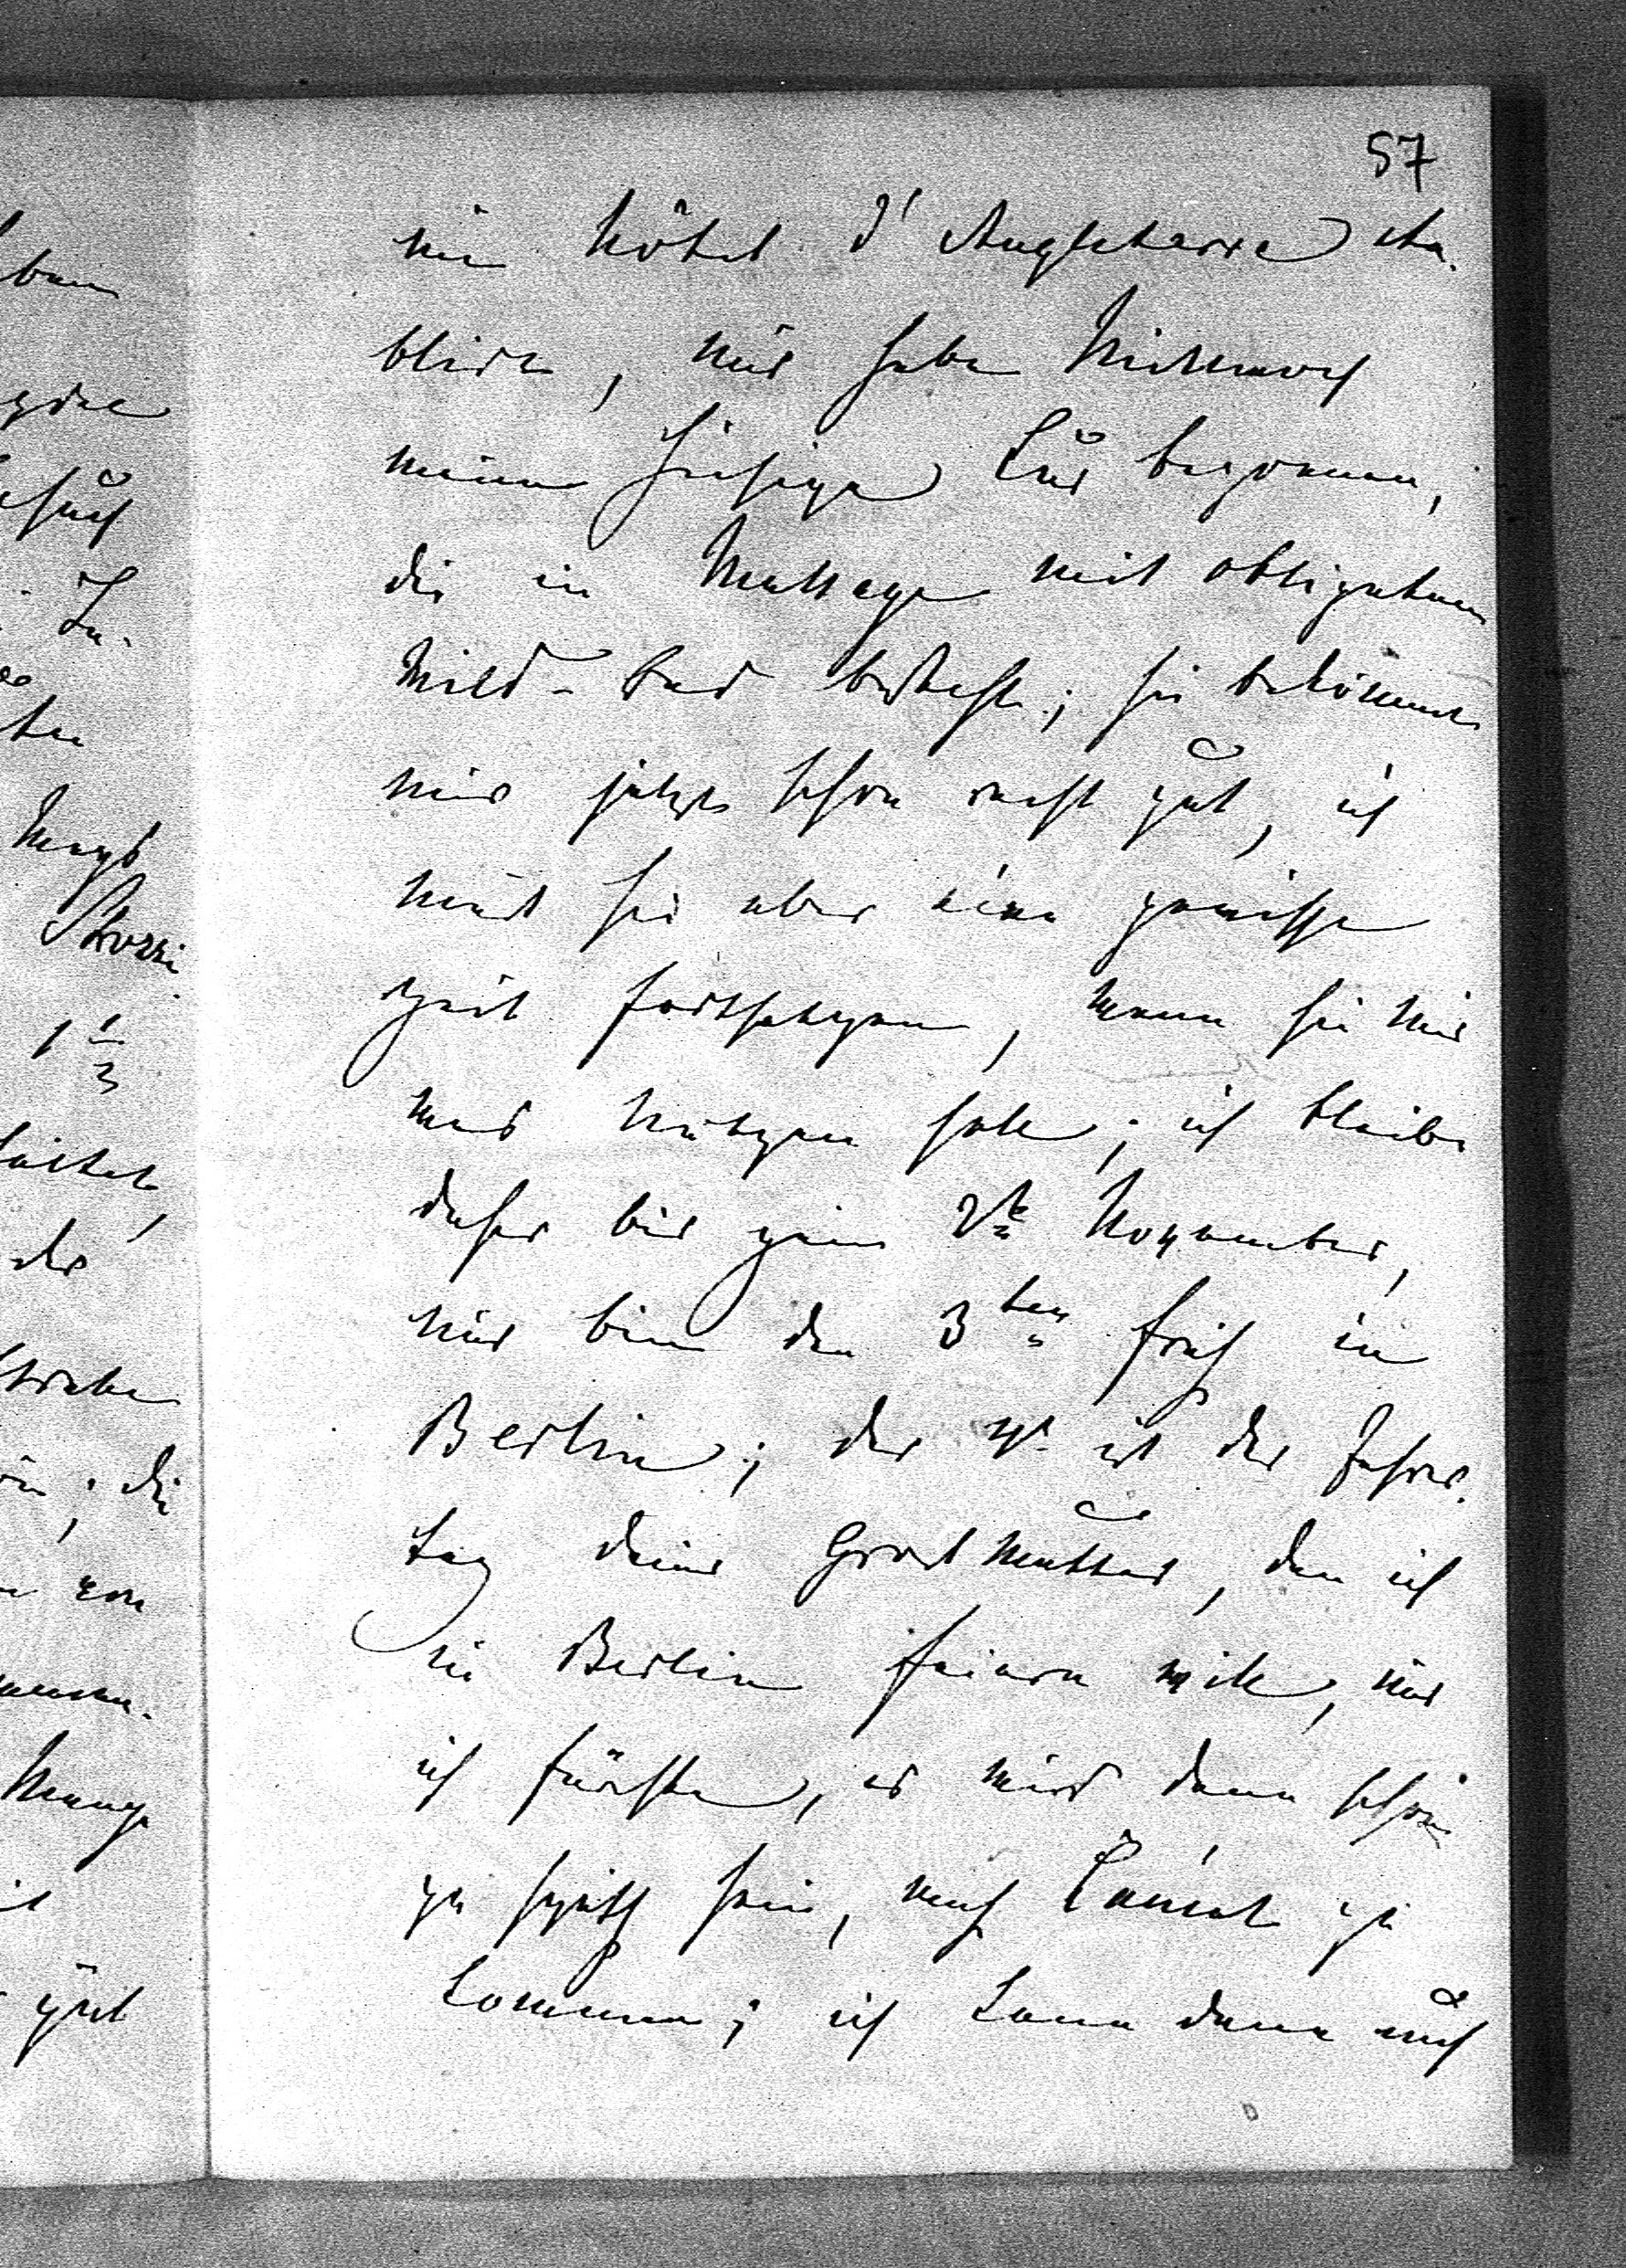 57
im Hôtel d'Angleterre eta-
blirt, und habe Mittwoch
meine hiesige Cur begonnen,
die in Massage mit obligatem
Wild-Bad besteht; sie bekömmt
mir jetzt schon recht gut, ich
muß sie aber eine gewisse
Zeit fortsetzen, wenn sie mir
was nützen soll; ich bleibe
daher bis zum 2te November,
und bin den 3ten früh in
Berlin; der 4t ist der Jahres-
tag deiner Großmutter, den ich
in Berlin feiern will, und
ich fürchte, es wird dann schon
zu spät sein, nach zu
kommen; ich kann dann auch
ben
Such
ten
Strozzi
1 1/3
der
; die
von
Menge
gut